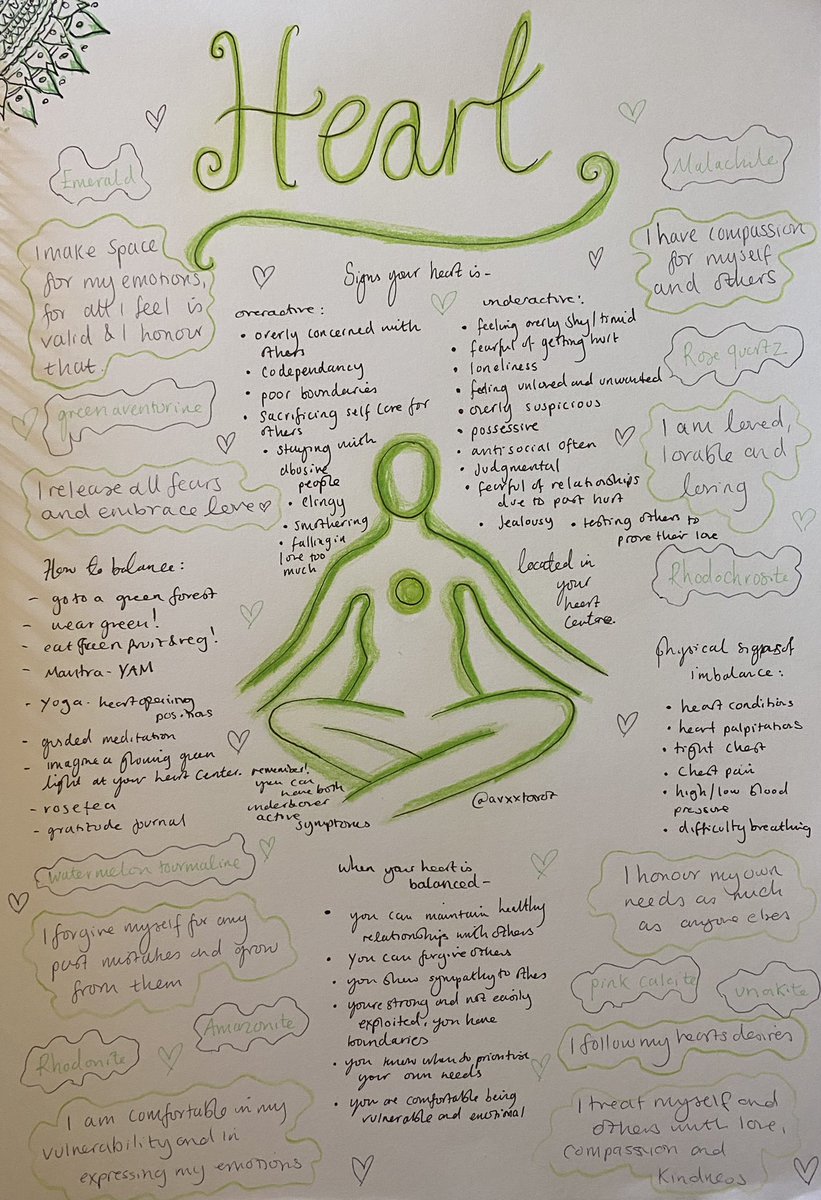 Heart
Emerald
I make space
for my emotions,
for all I feel is
valid & I honour
that.
green aventurine
I release all fears
and embrace love
Signs your heart is -
overactive:
• overly concerned with
others
• codependancy
• poor boundaries
• Sacrificing self care for
others
• staying with
abusive
people
• clingy
• smothering
• falling in
love too
much
underactive:
• feeling overly shy/timid
• fearful of getting hurt
• loneliness
• feeling unloved and unwanted
• overly suspicious
• possessive
• antisocial often
• judgmental
• fearful of relationships
due to past hurt
• Jealousy
• testing others to
prove their love
Malachite
I have compassion
for myself
and others
Rose quartz
I am loved,
lovable and
loving
Rhodochrosite
located in
your
heart
centre.
How to balance:
- go to a green forest
- wear green!
- eat green fruit & veg!
- Mantra - YAM
- Yoga - heart opening
positions
- guided meditation
- imagine a glowing green
light at your heart center.
- rose tea
- gratitude journal
remember!
you can
have both
under & over
active
symptoms
@avxxtarot
physical signs of
imbalance:
• heart conditions
• heart palpitations
• tight chest
• chest pain
• high/low blood
pressure
• difficulty breathing
watermelon tourmaline
I forgive myself for any
past mistakes and grow
from them
Amazonite
Rhodonite
I am comfortable in my
vulnerability and in
expressing my emotions
When your heart is
balanced -
• you can maintain healthy
relationships with others
• You can forgive others
• you show sympathy to others
• youre strong and not easily
exploited, you have
boundaries
• you know when to prioritise
your own needs
• you are comfortable being
vulnerable and emotional
I honour my own
needs as much
as anyone elses
pink calcite
unakite
I follow my hearts desires
I treat myself and
others with love,
compassion and
kindness